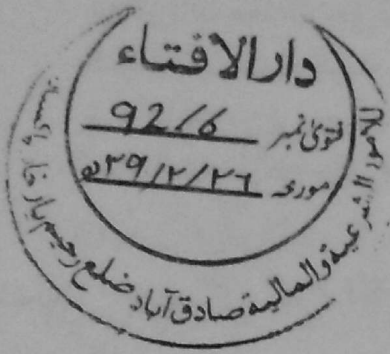 دار الافتاء
فتویٰ نمبر 92/6
مورخہ ۲۹/۲/۲۶ھ
للامور الشرعیة والمالیة صادق آباد ضلع رحیم یار خان